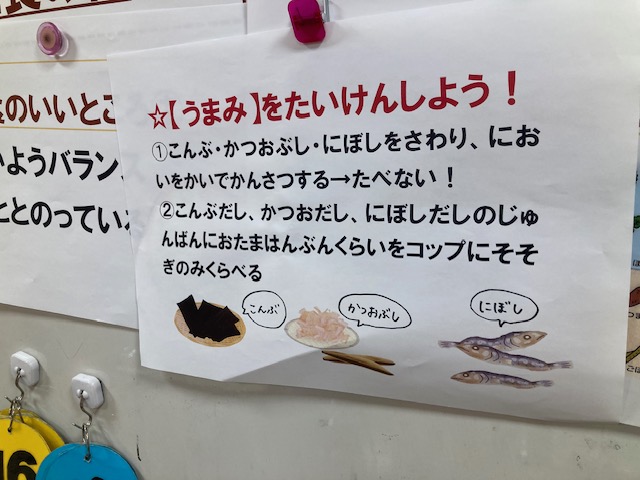 のいいとこ
ようバランス
ととのってい
☆【うまみ】をたいけんしよう！
①こんぶ・かつおぶし・にぼしをさわり、にお
いをかいでかんさつする→たべない！
②こんぶだし、かつおだし、にぼしだしのじゅ
んばんにおたまはんぶんくらいをコップにそそ
ぎのみくらべる
こんぶ
かつおぶし
にぼし
16